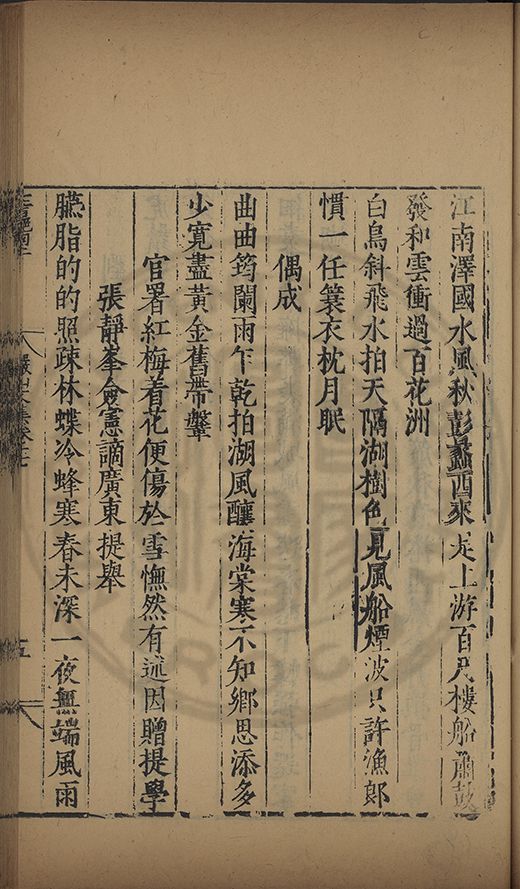 江南澤國水風秋彭蠡西來是上游百尺樓船蕭鼓
發和雲衝過百花洲
白鳥斜飛水拍天隔湖樹色見風船煙波只許漁郎
慣一任簑衣枕月眠
偶成
曲曲筠闌雨乍乾拍湖風釀海棠寒不知鄉思添多
少寬盡黃金舊帶鞶
官署紅梅着花便傷於雪憮然有述因贈提學
張靜峯僉憲謫廣東提舉
臙脂的的照疎林蝶冷蜂寒春未深一夜無端風雨
五